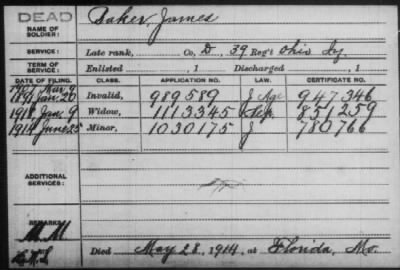 DEAD
NAME OF SOLDIER: Baker, James
SERVICE: Late rank, Co. D, 39 Reg't Ohio Inf.
TERM OF SERVICE: Enlisted , 1 Discharged , 1
DATE OF FILING. CLASS. APPLICATION NO. LAW. CERTIFICATE NO.
1907 Mar 9
1891 Jan. 20 Invalid, 989589 J Age 947346
Jan. 9 Widow, 1113345 851259
1914 June 25 Minor, 1030175 J 780766
ADDITIONAL SERVICES:
REMARKS:
Died May 28, 1914, at Florida, Mo.